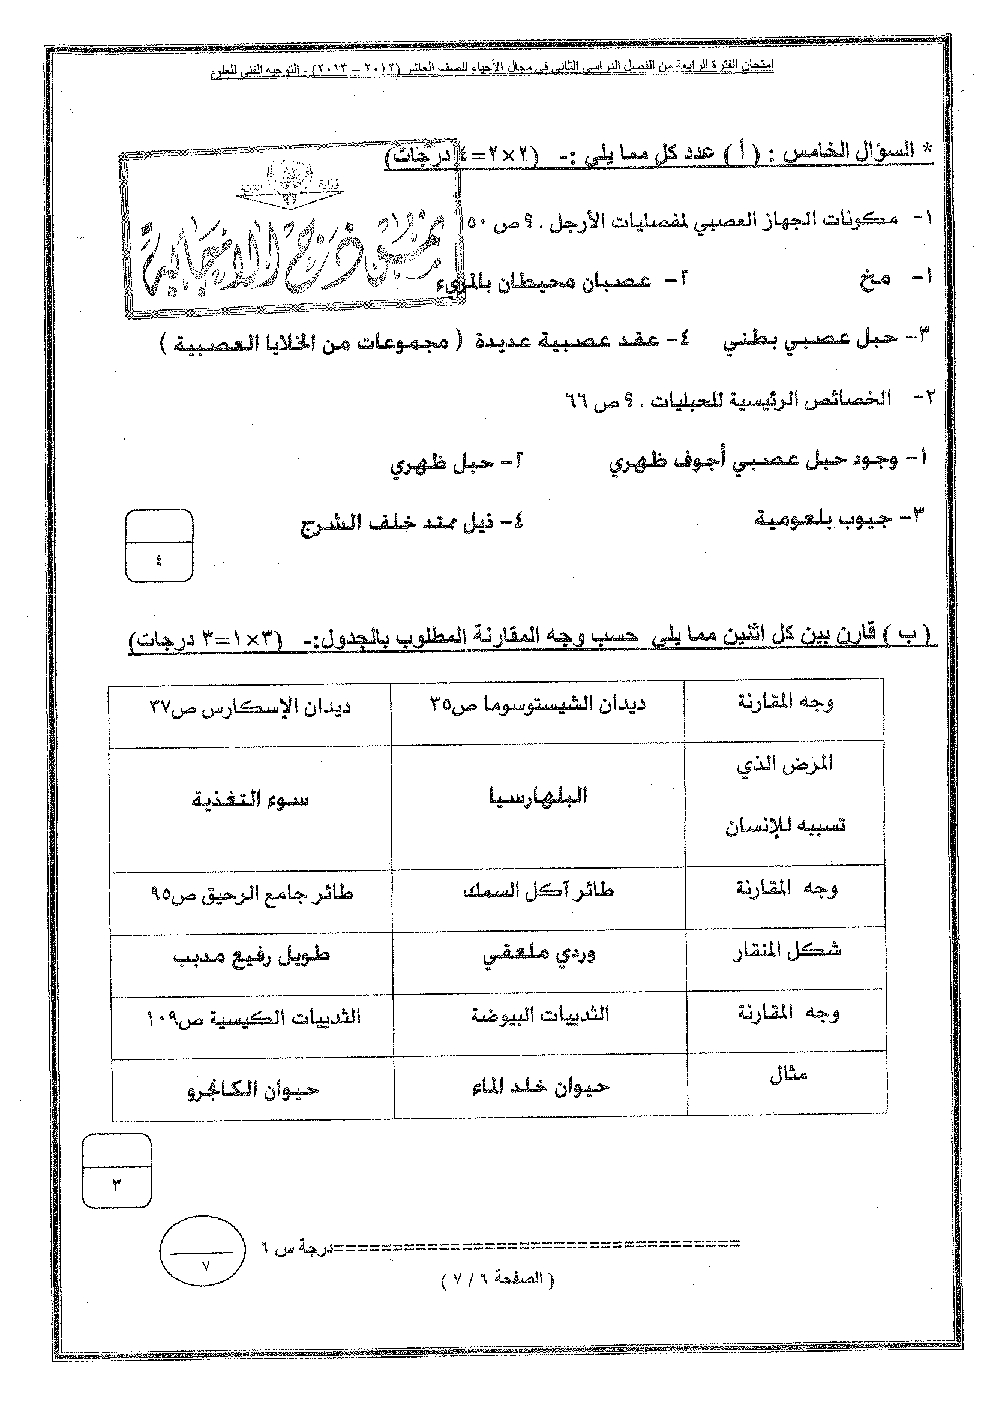 امتحان الفترة الرابعة من الفصل الدراسي الثاني في مجال الأحياء للصف العاشر (٢٠١٢ – ٢٠١٣) - التوجيه الفني للعلوم
* السؤال الخامس : ( أ ) عدد كل مما يلي :- (٢×٢=٤ درجات)
نموذج الإجابة
١- مكونات الجهاز العصبي لمفصليات الأرجل . ؟ ص ٥٠
١- مخ ٢- عصبان محيطان بالمريء
٣- حبل عصبي بطني ٤- عقد عصبية عديدة ( مجموعات من الخلايا العصبية )
٢- الخصائص الرئيسية للحبليات . ؟ ص ٦٦
١- وجود حبل عصبي أجوف ظهري ٢- حبل ظهري
٣- جيوب بلعومية ٤- ذيل ممتد خلف الشرج
٤
( ب ) قارن بين كل اثنين مما يلي حسب وجه المقارنة المطلوب بالجدول:- (٣×١=٣ درجات)
وجه المقارنة ديدان الشيستوسوما ص٣٥ ديدان الإسكارس ص٣٧
المرض الذي
تسببه للإنسان البلهارسيا سوء التغذية
وجه المقارنة طائر آكل السمك طائر جامع الرحيق ص٩٥
شكل المنقار وردي ملعقي طويل رفيع مدبب
وجه المقارنة الثدييات البيوضة الثدييات الكيسية ص١٠٩
مثال حيوان خلد الماء حيوان الكانجرو
٣
درجة س ٦
٧
( الصفحة ٦ / ٧ )